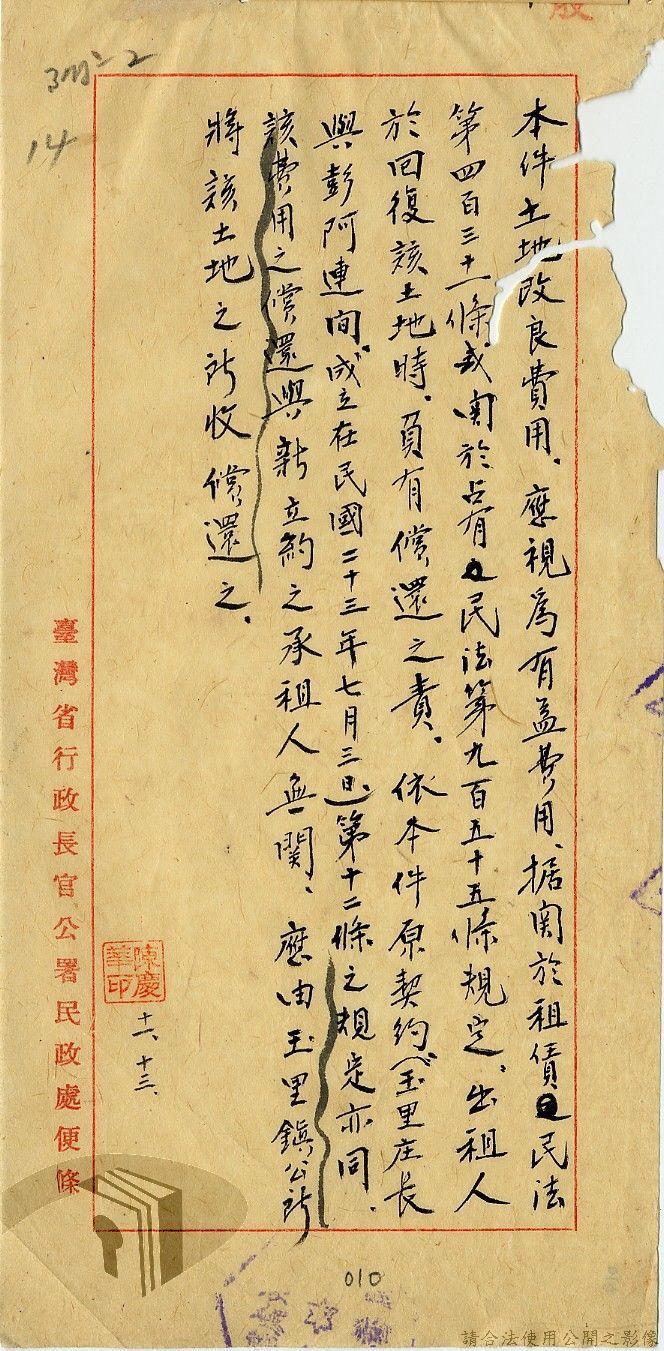 本件土地改良費用、應視為有益費用、据関於租賃民法
第四百三十一條、或関於占有民法第九百五十五條規定、出租人
於回復該土地時、負有償還之責。依本件原契約(玉里庄長
與彭阿連間、成立在民國二十三年七月三日)第十二條之規定亦同、
該費用之償還與新立約之承租人無関、應由玉里鎮公所
將該土地之所收償還之、
陳慶華印
十一、十三、
臺灣省行政長官公署民政處便條
14
010
請合法使用公開之影像